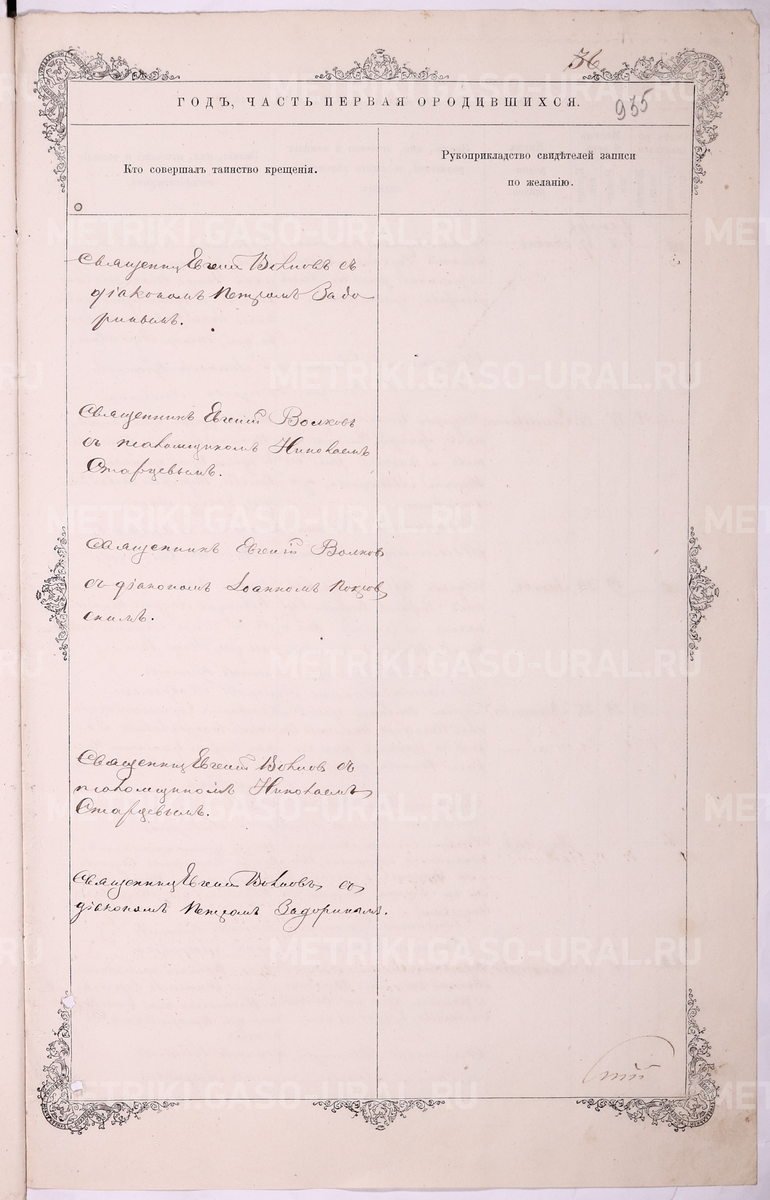 36
935
ГОДЪ, ЧАСТЬ ПЕРВАЯ ОРОДИВШИХСЯ.
Кто совершалъ таинство крещенія.
Рукоприкладство свидѣтелей записи
по желанію.
Священникъ Евгеній Волковъ съ
діакономъ Петромъ Задо
ринымъ.
Священникъ Евгеній Волковъ
съ псаломщикомъ Николаемъ
Старцевымъ.
Священникъ Евгеній Волков
съ діакономъ Іоанномъ Покров
скимъ.
Священникъ Евгеній Волков съ
псаломщикомъ Николаемъ
Старцевымъ.
Священникъ Евгеній Волковъ съ
діакономъ Петромъ Задоринымъ.
METRIKI.GASO-URAL.RU